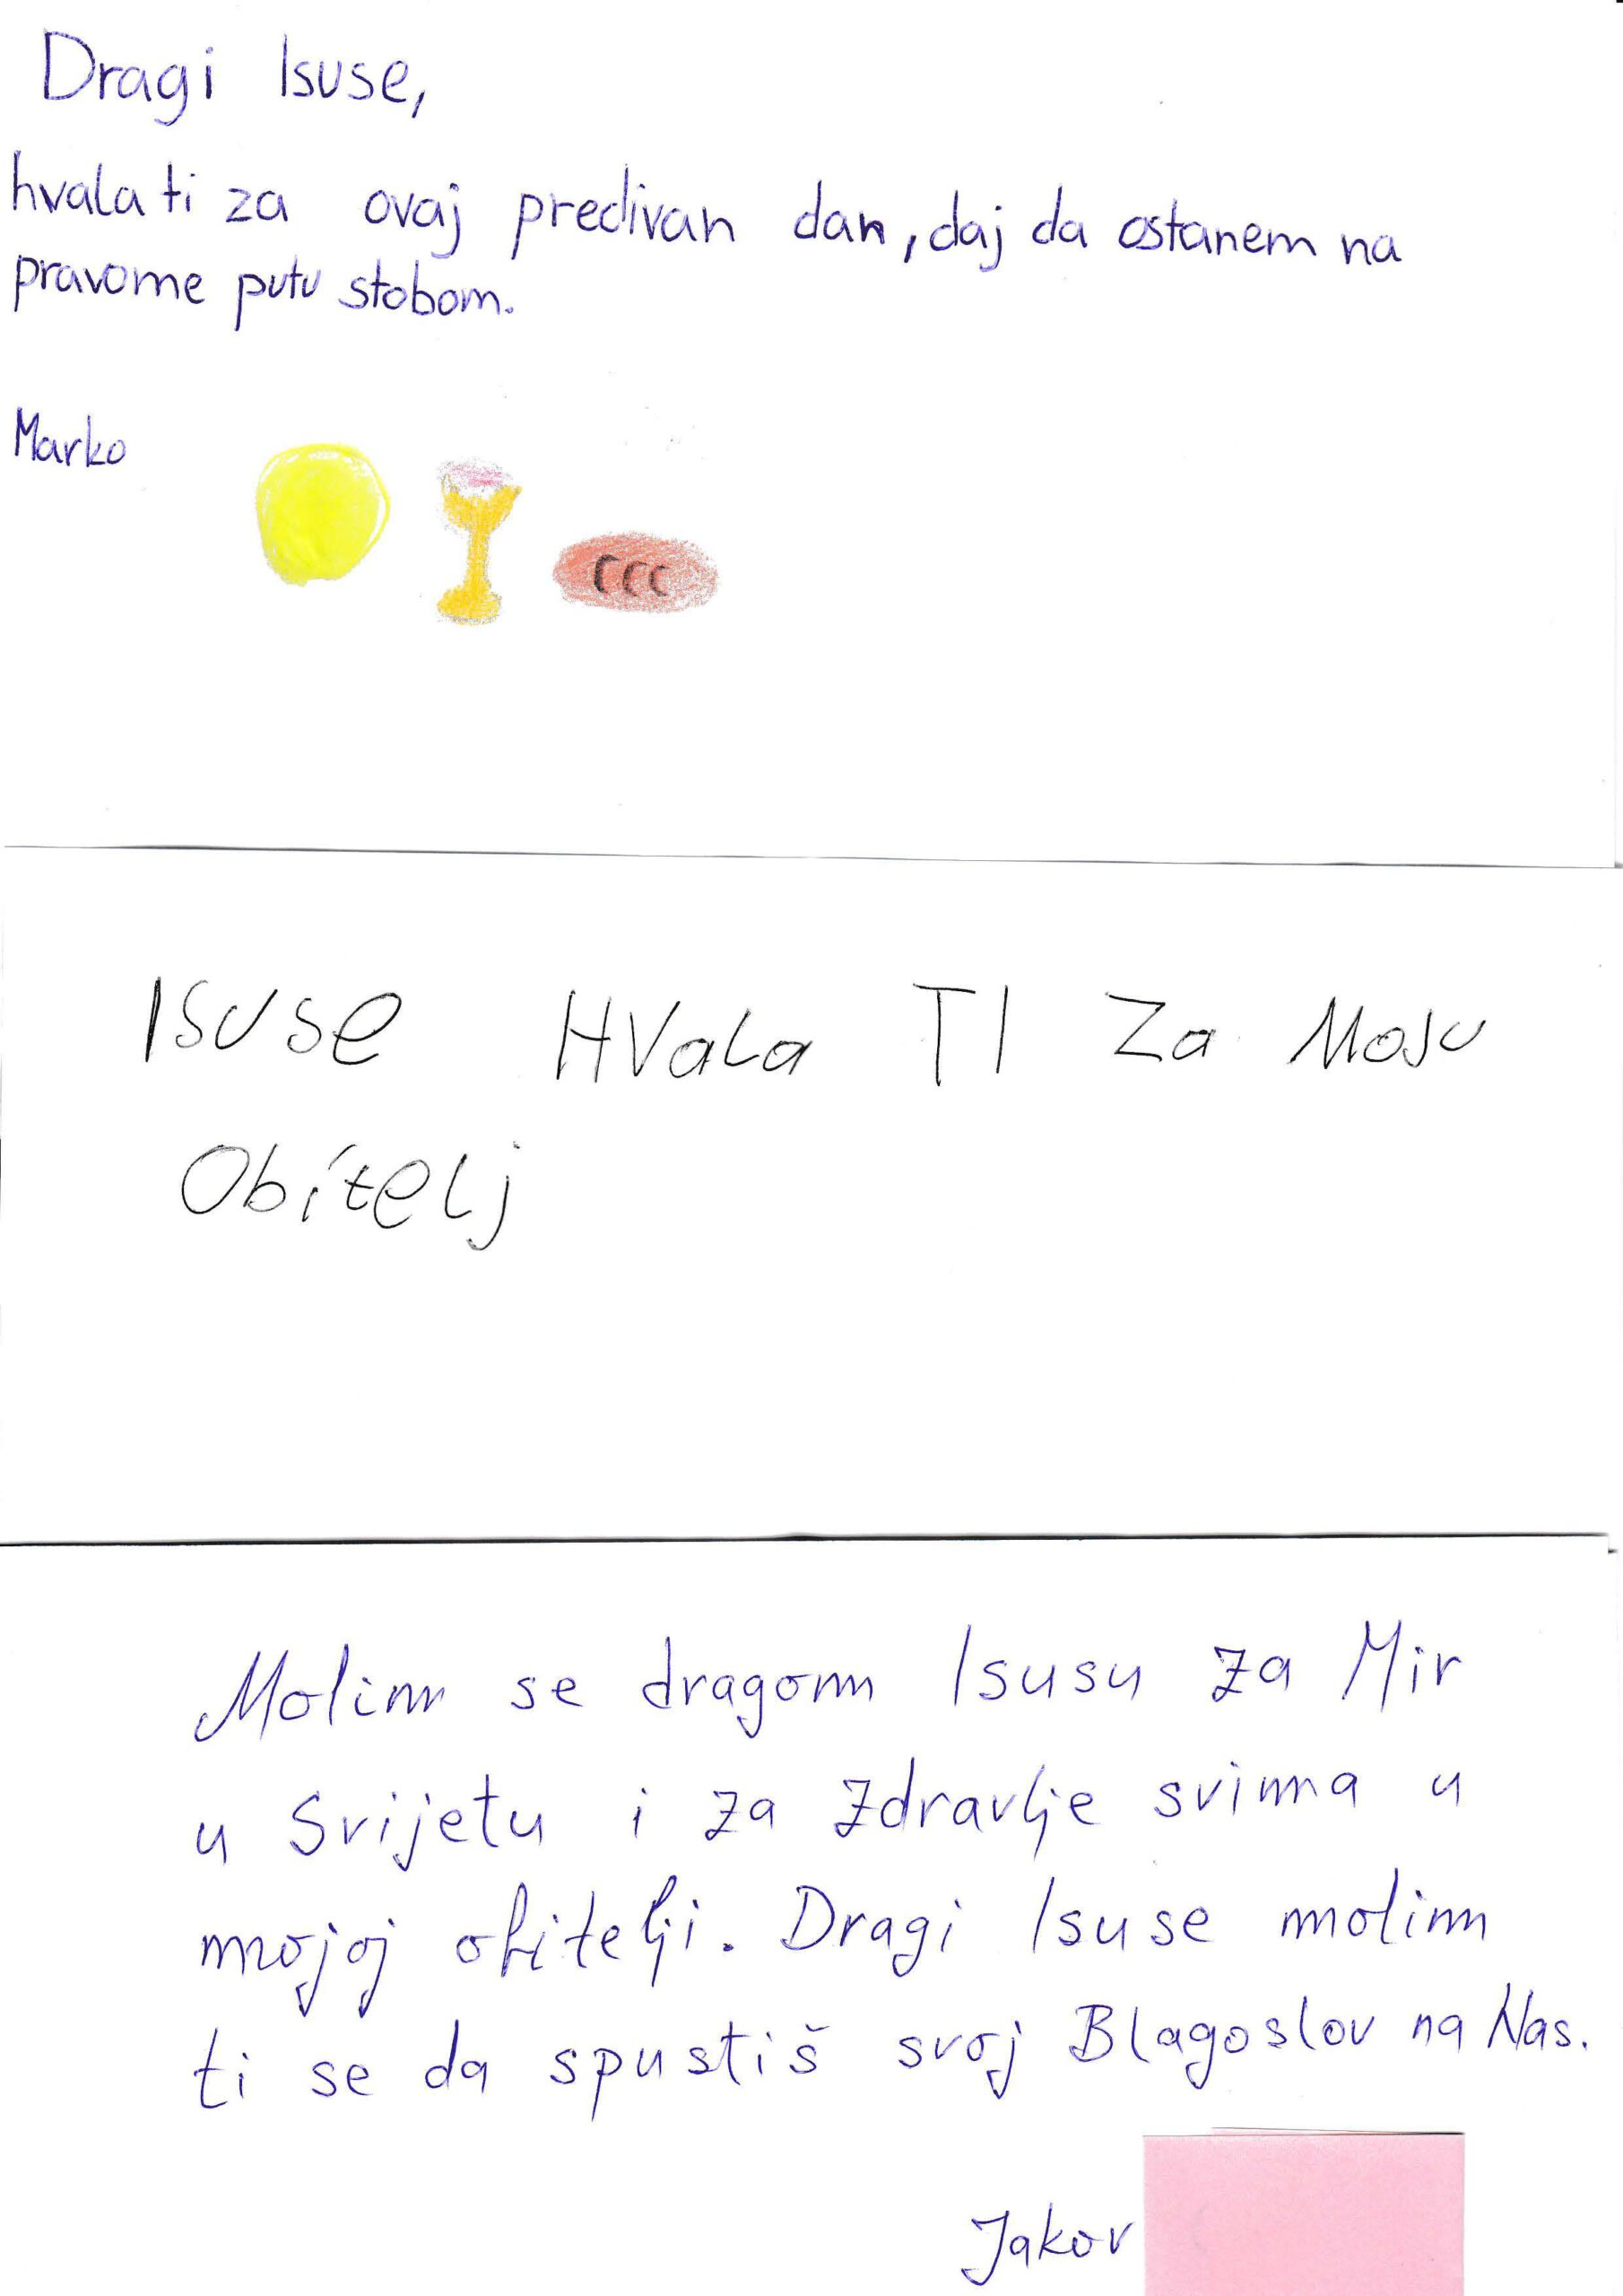 Dragi Isuse,
hvala ti za ovaj predivan dan, daj da ostanem na
pravome putu stobom.
Marko
Isuse HVala TI Za MoJu
Obitelj
Molim se dragom Isusu za Mir
u Svijetu i za Zdravlje svima u
mojoj obitelji. Dragi Isuse molim
ti se da spustiš svoj Blagoslov na Nas.
Jakov